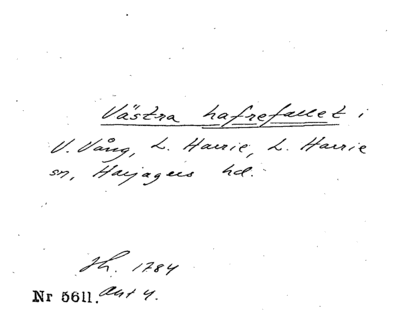 Västra hafrefallet i
V. Vång, L. Harrie, L. Harrie
sn, Harjagers hd.
Jh. 1784
Nr 5611. Akt 4.